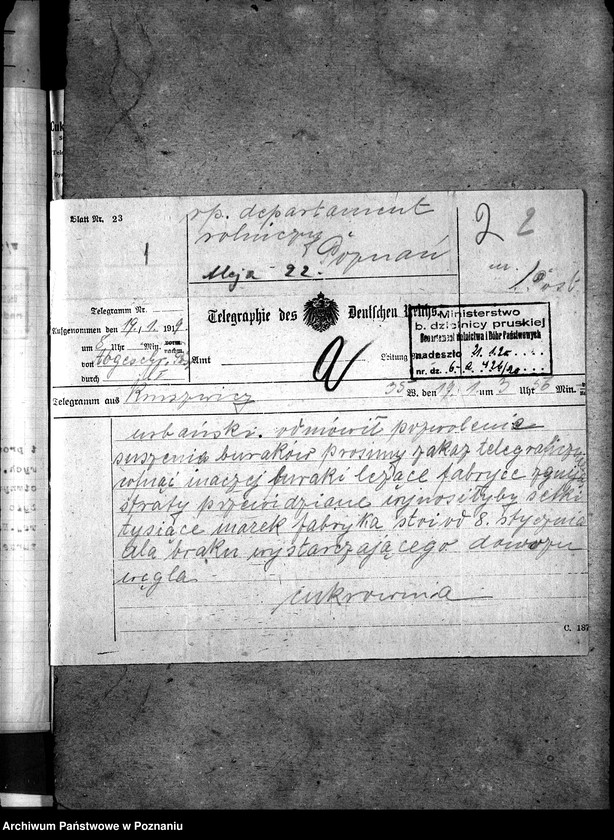 Blatt Nr. 23
rp. departament
rolniczy Poznań
Meja 22.
2 2
Telegramm Nr.
Aufgenommen den 19. 1. 1919
um 8 Uhr Min.
von
durch
Telegraphie des Deutschen Reichs.
Amt
Leitung
Ministerstwo
b. dzielnicy pruskiej
Departament Rolnictwa i Dóbr Państwowych
nadeszło 21.1.20
nr. dz. 6.a. 426/20
Telegramm aus Kruszwicy 35 W. den 19. 1. um 3 Uhr 56 Min.
urbański. odmówił pozwolenia
suszenia buraków prosimy zakaz telegraficznie
cofnąć inaczej buraki leżące fabryce zgniją
straty przewidziane wynosiłyby setki
tysiące marek fabryka stoi od 8. stycznia
dla braku wystarczającego dowozu
węgla
cukrownia
C. 187
Archiwum Państwowe w Poznaniu